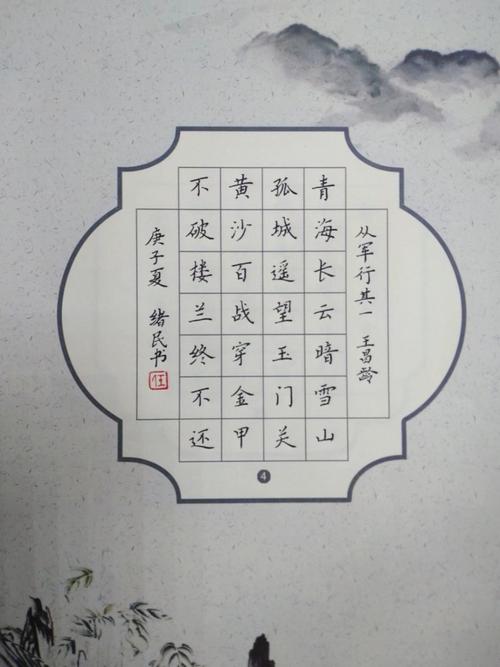 从军行其一 王昌龄
青海长云暗雪山
孤城遥望玉门关
黄沙百战穿金甲
不破楼兰终不还
庚子夏 绪民书
4